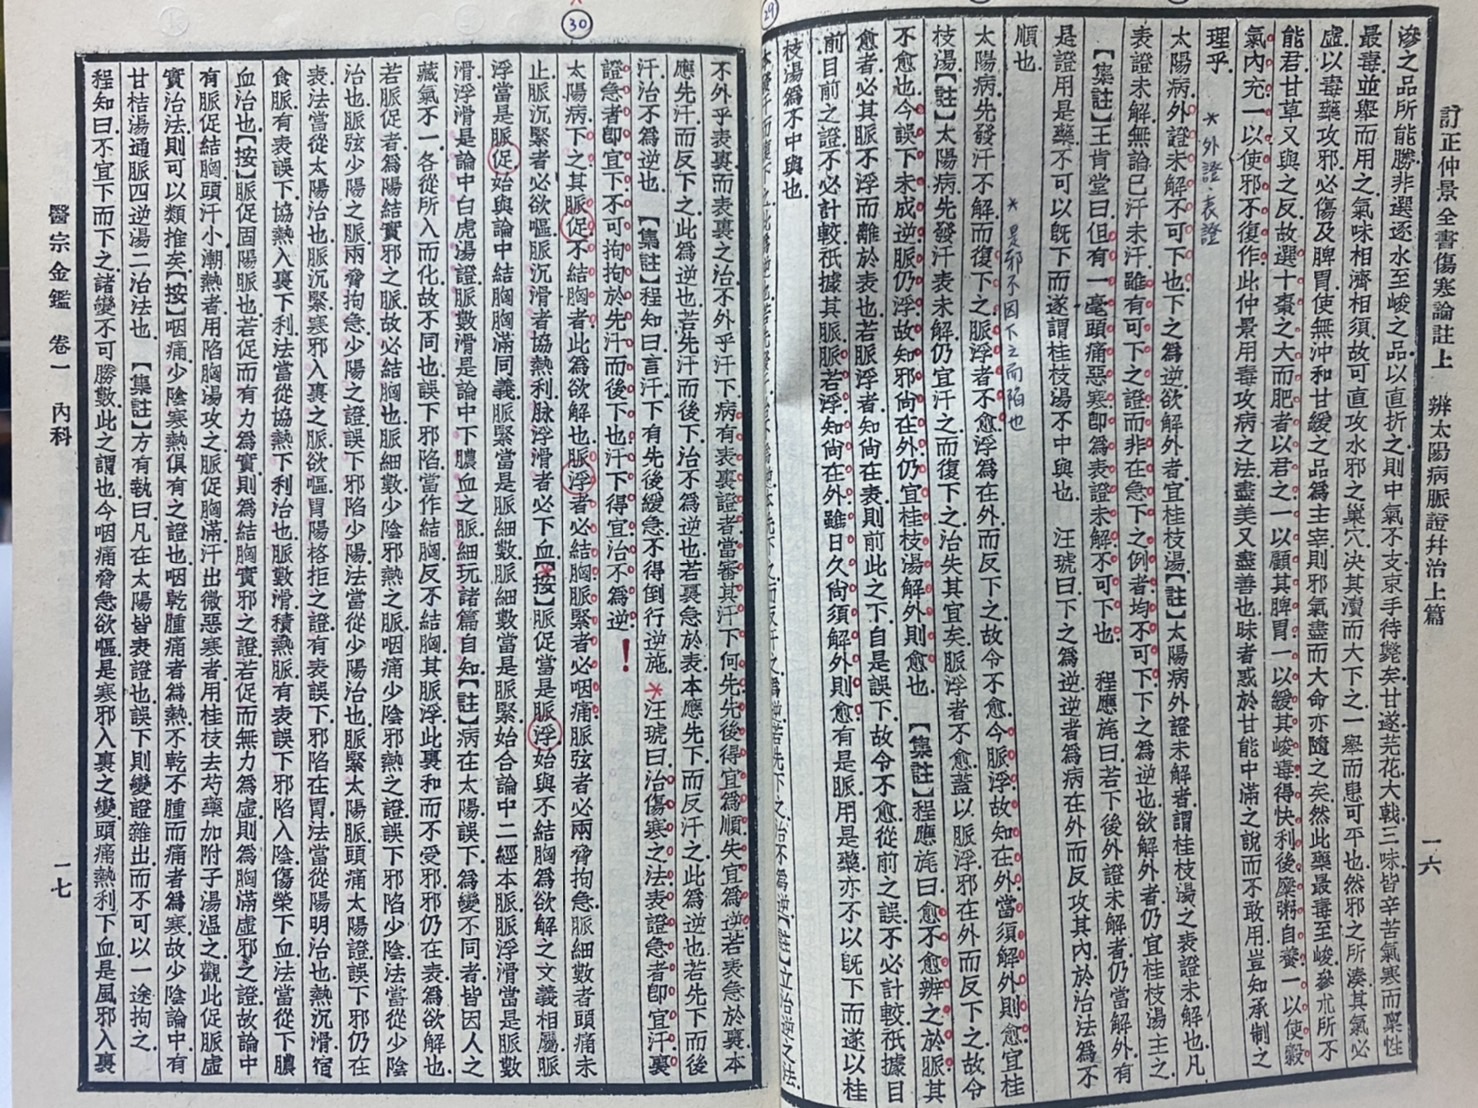 訂正仲景全書傷寒論註上　辨太陽病脈證幷治上篇　一六
滲之品所能勝非選逐水至峻之品以直折之則中氣不支束手待斃矣甘遂芫花大戟三味皆辛苦氣寒而稟性
最毒並舉而用之氣味相濟相須故可直攻水邪之巢穴決其瀆而大下之一舉而患可平也然邪之所湊其氣必
虛以毒藥攻邪必傷及脾胃使無沖和甘緩之品爲主宰則邪氣盡而大命亦隨之矣然此藥最毒至峻參朮所不
能君甘草又與之反故選十棗之大而肥者以君之一以顧其脾胃一以緩其峻毒得快利後糜粥自養一以使穀
氣內充一以使邪不復作此仲景用毒攻病之法盡美又盡善也昧者惑於甘能中滿之說而不敢用豈知承制之
理乎
＊外證、表證
太陽病外證未解不可下也下之爲逆欲解外者宜桂枝湯【註】太陽病外證未解者謂桂枝湯之表證未解也凡
表證未解無論已汗未汗雖有可下之證而非在急下之例者均不可下下之爲逆也欲解外者仍宜桂枝湯主之
【集註】王肯堂曰但有一毫頭痛惡寒卽爲表證未解不可下也　程應旄曰若下後外證未解者仍當解外有
是證用是藥不可以旣下而遂謂桂枝湯不中與也　汪琥曰下之爲逆逆者爲病在外而反攻其內於治法爲不
順也
＊是邪不因下之而陷也
太陽病先發汗不解而復下之脈浮者不愈浮爲在外而反下之故令不愈今脈浮故知在外當須解外則愈宜桂
枝湯【註】太陽病先發汗表未解仍宜汗之而復下之治失其宜矣脈浮者不愈蓋以脈浮邪在外而反下之故令
不愈也今誤下未成逆脈仍浮故知邪尙在外仍宜桂枝湯解外則愈也　【集註】程應旄曰愈不愈辨之於脈其
愈者必其脈不浮而離於表也若脈浮者知尙在表則前此之下自是誤下故令不愈從前之誤不必計較祇據目
前目前之證不必計較祇據其脈脈若浮知尙在外雖日久尙須解外則愈有是脈用是藥亦不以旣下而遂以桂
枝湯爲不中與也
29
30
不外乎表裏而表裏之治不外乎汗下病有表裏證者當審其汗下何先先後得宜爲順失宜爲逆若表急於裏本
應先汗而反下之此爲逆也若先汗而後下治不爲逆也若裏急於表本應先下而反汗之此爲逆也若先下而後
汗治不爲逆也　【集註】程知曰言汗下有先後緩急不得倒行逆施　＊汪琥曰治傷寒之法表證急者卽宜汗裏
證急者卽宜下不可拘拘於先汗而後下也汗下得宜治不爲逆！
太陽病下之其脈促不結胸者此爲欲解也脈浮者必結胸脈緊者必咽痛脈弦者必兩脅拘急脈細數者頭痛未
止脈沉緊者必欲嘔脈沉滑者協熱利脈浮滑者必下血【按】脈促當是脈浮始與不結胸爲欲解之文義相屬脈
浮當是脈促始與論中結胸胸滿同義脈緊當是脈細數脈細數當是脈緊始合論中二經本脈脈浮滑當是脈數
滑浮滑是論中白虎湯證脈數滑是論中下膿血之脈細玩諸篇自知【註】病在太陽誤下爲變不同者皆因人之
藏氣不一各從所入而化故不同也誤下邪陷當作結胸反不結胸其脈浮此裏和而不受邪邪仍在表爲欲解也
若脈促者爲陽結實邪之脈故必結胸也脈細數少陰邪熱之脈咽痛少陰邪熱之證誤下邪陷少陰法當從少陰
治也脈弦少陽之脈兩脅拘急少陽之證誤下邪陷少陽法當從少陽治也脈緊太陽脈頭痛太陽證誤下邪仍在
表法當從太陽治也脈沉緊寒邪入裏之脈欲嘔胃陽格拒之證有表誤下邪陷在胃法當從陽明治也熱沉滑宿
食脈有表誤下協熱入裏下利法當從協熱下利治也脈數滑積熱脈有表誤下邪陷入陰傷榮下血法當從下膿
血治也【按】脈促固陽脈也若促而有力爲實則爲結胸實邪之證若促而無力爲虛則爲胸滿虛邪之證故論中
有脈促結胸頭汗小潮熱者用陷胸湯攻之脈促胸滿汗出微惡寒者用桂枝去芍藥加附子湯溫之觀此促脈虛
實治法則可以類推矣【按】咽痛少陰寒熱俱有之證也咽乾腫痛者爲熱不乾不腫而痛者爲寒故少陰論中有
甘桔湯通脈四逆湯二治法也　【集註】方有執曰凡在太陽皆表證也誤下則變證雜出而不可以一途拘之
程知曰不宜下而下之諸變不可勝數此之謂也今咽痛脅急欲嘔是寒邪入裏之變頭痛熱利下血是風邪入裏
醫宗金鑑　卷一　內科　一七